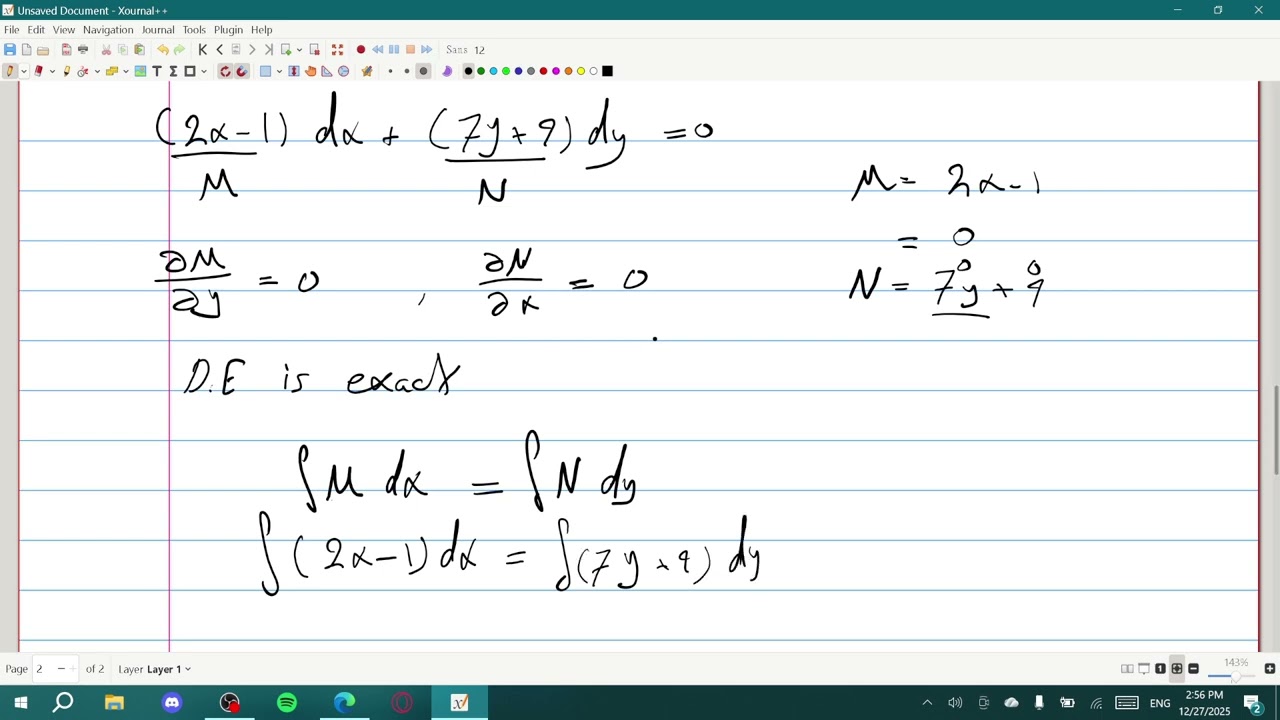 Unsaved Document - Xournal++
File Edit View Navigation Journal Tools Plugin Help
Sans 12
(2x-1) dx + (7y+9) dy = 0
M N
M = 2x-1
= 0
∂M/∂y = 0 , ∂N/∂x = 0
0 0
N = 7y + 9
D.E is exact
∫ M dx = ∫ N dy
∫ (2x-1) dx = ∫ (7y+9) dy
Page 2 of 2 Layer Layer 1 143%
ENG 2:56 PM
12/27/2025
2